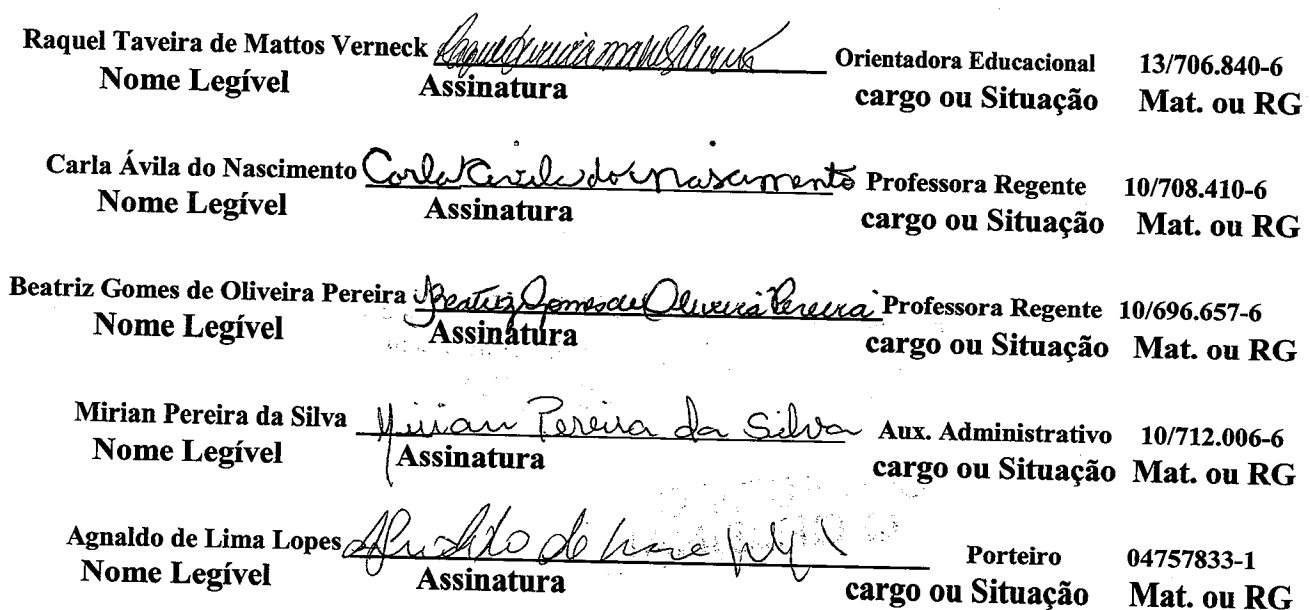 Raquel Taveira de Mattos Verneck Orientadora Educacional 13/706.840-6
Nome Legível Assinatura cargo ou Situação Mat. ou RG
Carla Ávila do Nascimento Carla Avila do Nascimento Professora Regente 10/708.410-6
Nome Legível Assinatura cargo ou Situação Mat. ou RG
Beatriz Gomes de Oliveira Pereira Beatriz Gomes de Oliveira Pereira Professora Regente 10/696.657-6
Nome Legível Assinatura cargo ou Situação Mat. ou RG
Mirian Pereira da Silva Mirian Pereira da Silva Aux. Administrativo 10/712.006-6
Nome Legível Assinatura cargo ou Situação Mat. ou RG
Agnaldo de Lima Lopes Porteiro 04757833-1
Nome Legível Assinatura cargo ou Situação Mat. ou RG